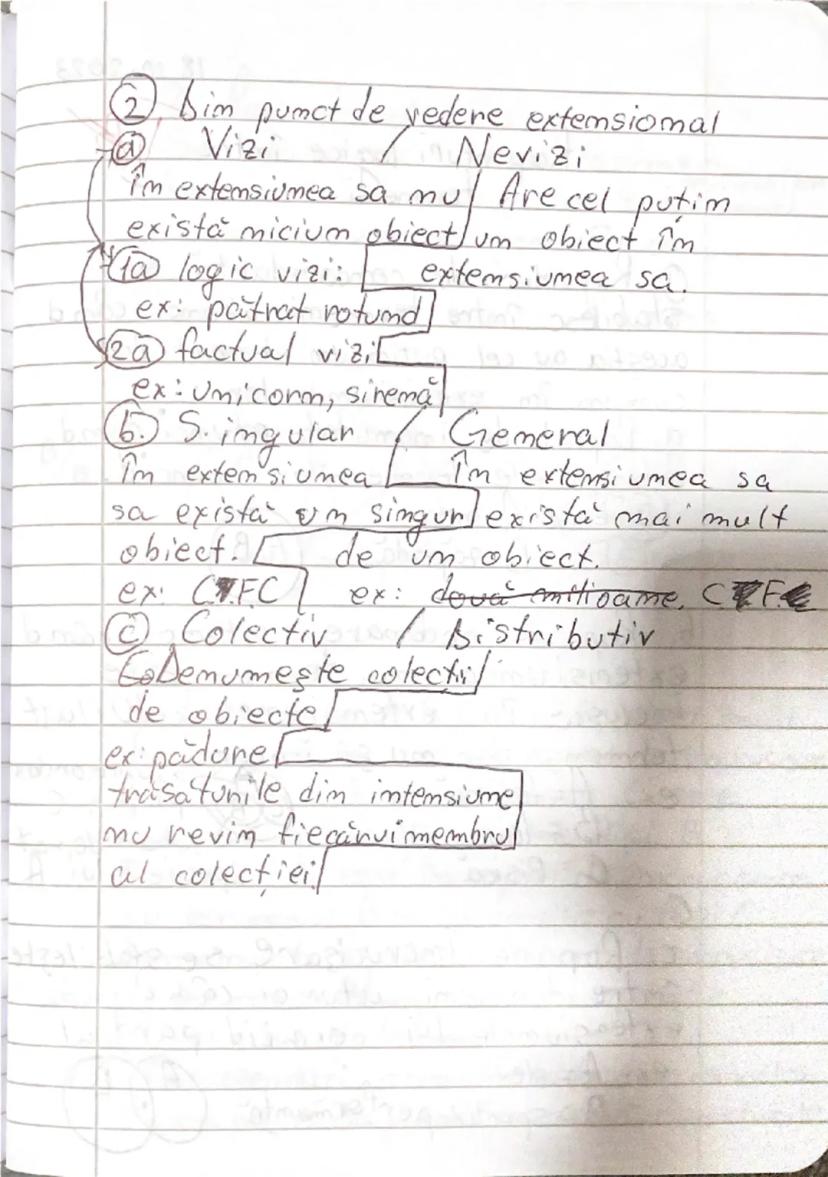 2. Din punct de vedere extensional
a Vizi / Nevizi
În extensiunea sa nu / Are cel puțin
există niciun obiect / un obiect în
1a logic vizi: extensiunea sa.
ex: pătrat rotund
2a factual vizi
ex: unicorn, sirenă
b. Singular / General
În extensiunea În extensiunea sa
sa există un singur există mai mult
obiect. de un obiect.
ex: C.F.C ex: două milioane, C F
c Colectiv / Distributiv
Denumește colecții
de obiecte
ex: pădure
trăsăturile din intensiune
nu revin fiecărui membru
al colecției